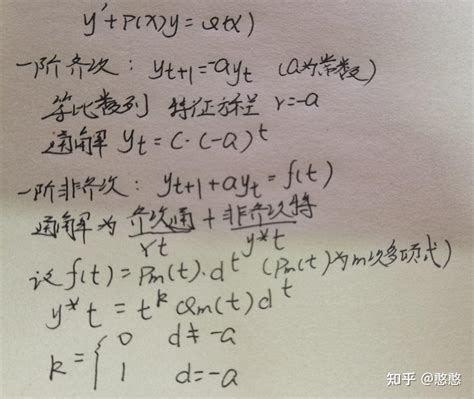 y'+P(x)y=Q(x)
一阶齐次: yt+1=-ayt (a为常数)
等比数列 特征方程 r=-a
通解 yt=C·(-a)^t
一阶非齐次: yt+1+ayt=f(t)
通解为 齐次通+非齐次特
Yt y*t
设 f(t)=Pm(t)·d^t (Pm(t)为m次多项式)
y*t=t^k Qm(t)d^t
k={0 d≠-a
1 d=-a
知乎 @憨憨